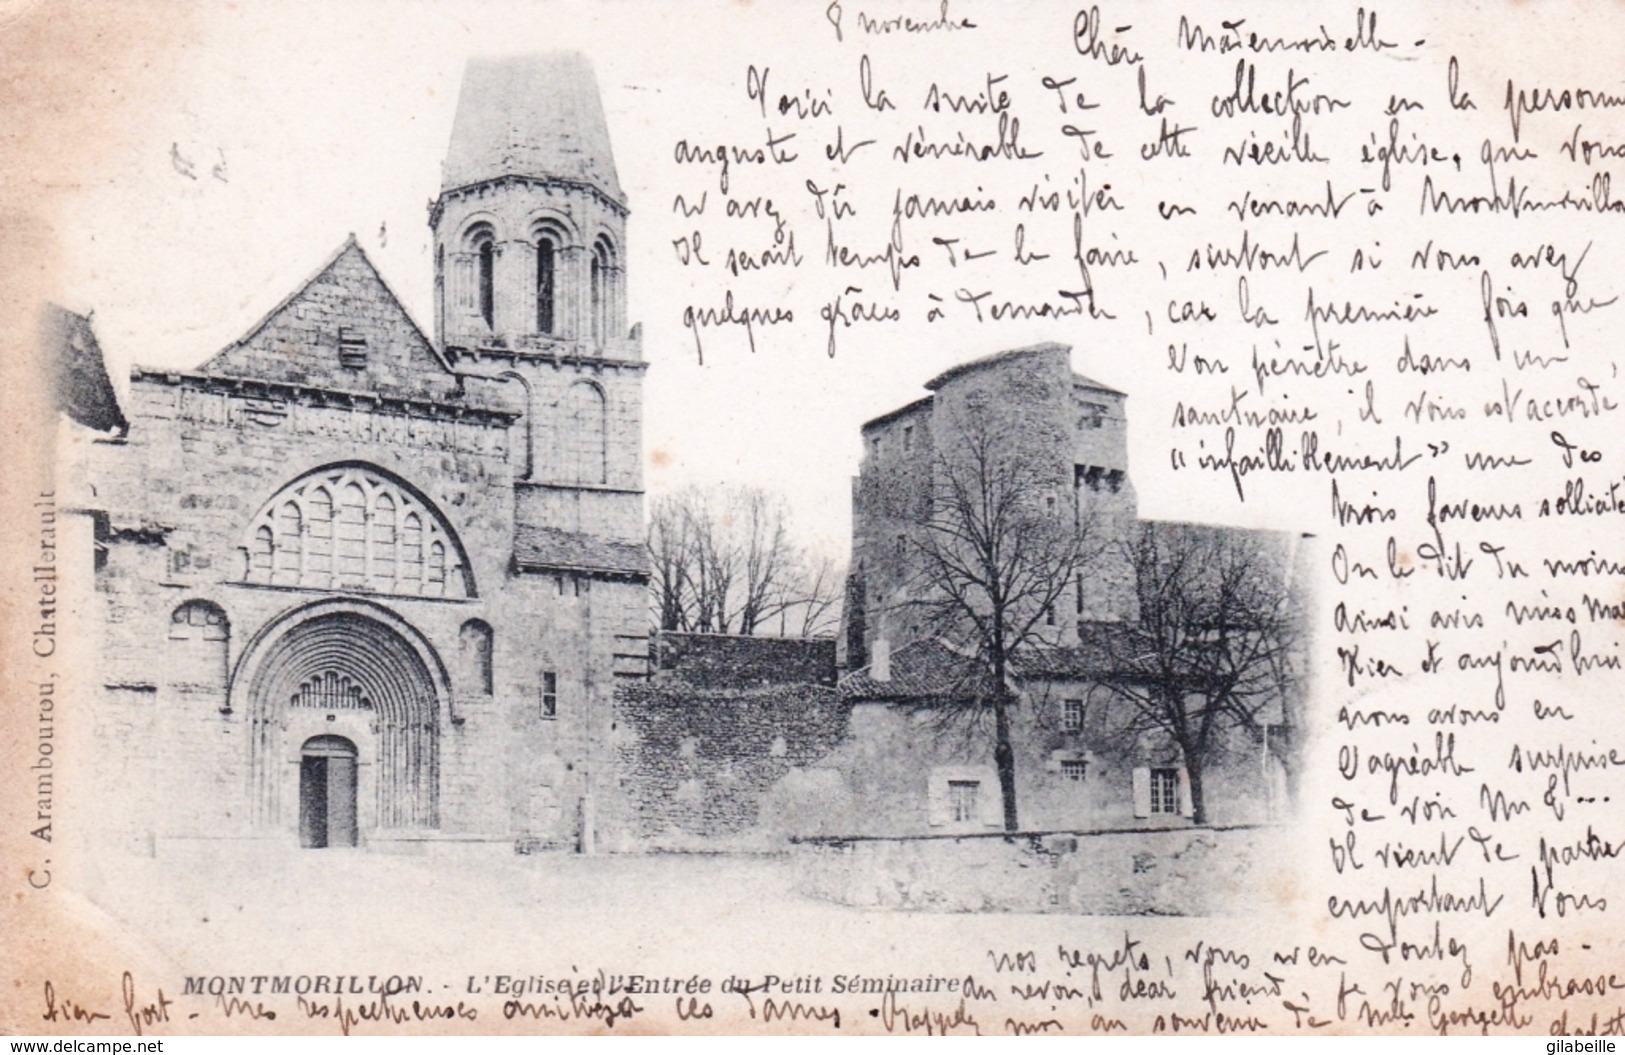 8 novembre
Chère Mademoiselle -
Voici la suite de la collection en la personne
auguste et vénérable de cette vieille église, que vous
n'avez dû jamais visiter en venant à Montmorillon
Il serait temps de le faire, surtout si vous avez
quelques grâces à demander, car la première fois que
l'on pénètre dans un
sanctuaire, il vous est accordé
"infailliblement" une des
trois faveurs sollicité
On le dit du moins
Ainsi avis miss
Hier et aujourd'hui
nous avons en
l'agréable surprise
de voir Mr E...
Il vient de partir
emportant Vous
nos regrets, vous n'en doutez pas -
au revoir, dear friend Je vous embrasse
bien fort - Mes respectueuses amitiés à ces dames - Rappelez moi au souvenir de Mlle Georgette
MONTMORILLON. - L'Eglise et l'Entrée du Petit Séminaire
C. Arambourou, Chatellerault
https://www.delcampe.net
gilabeille